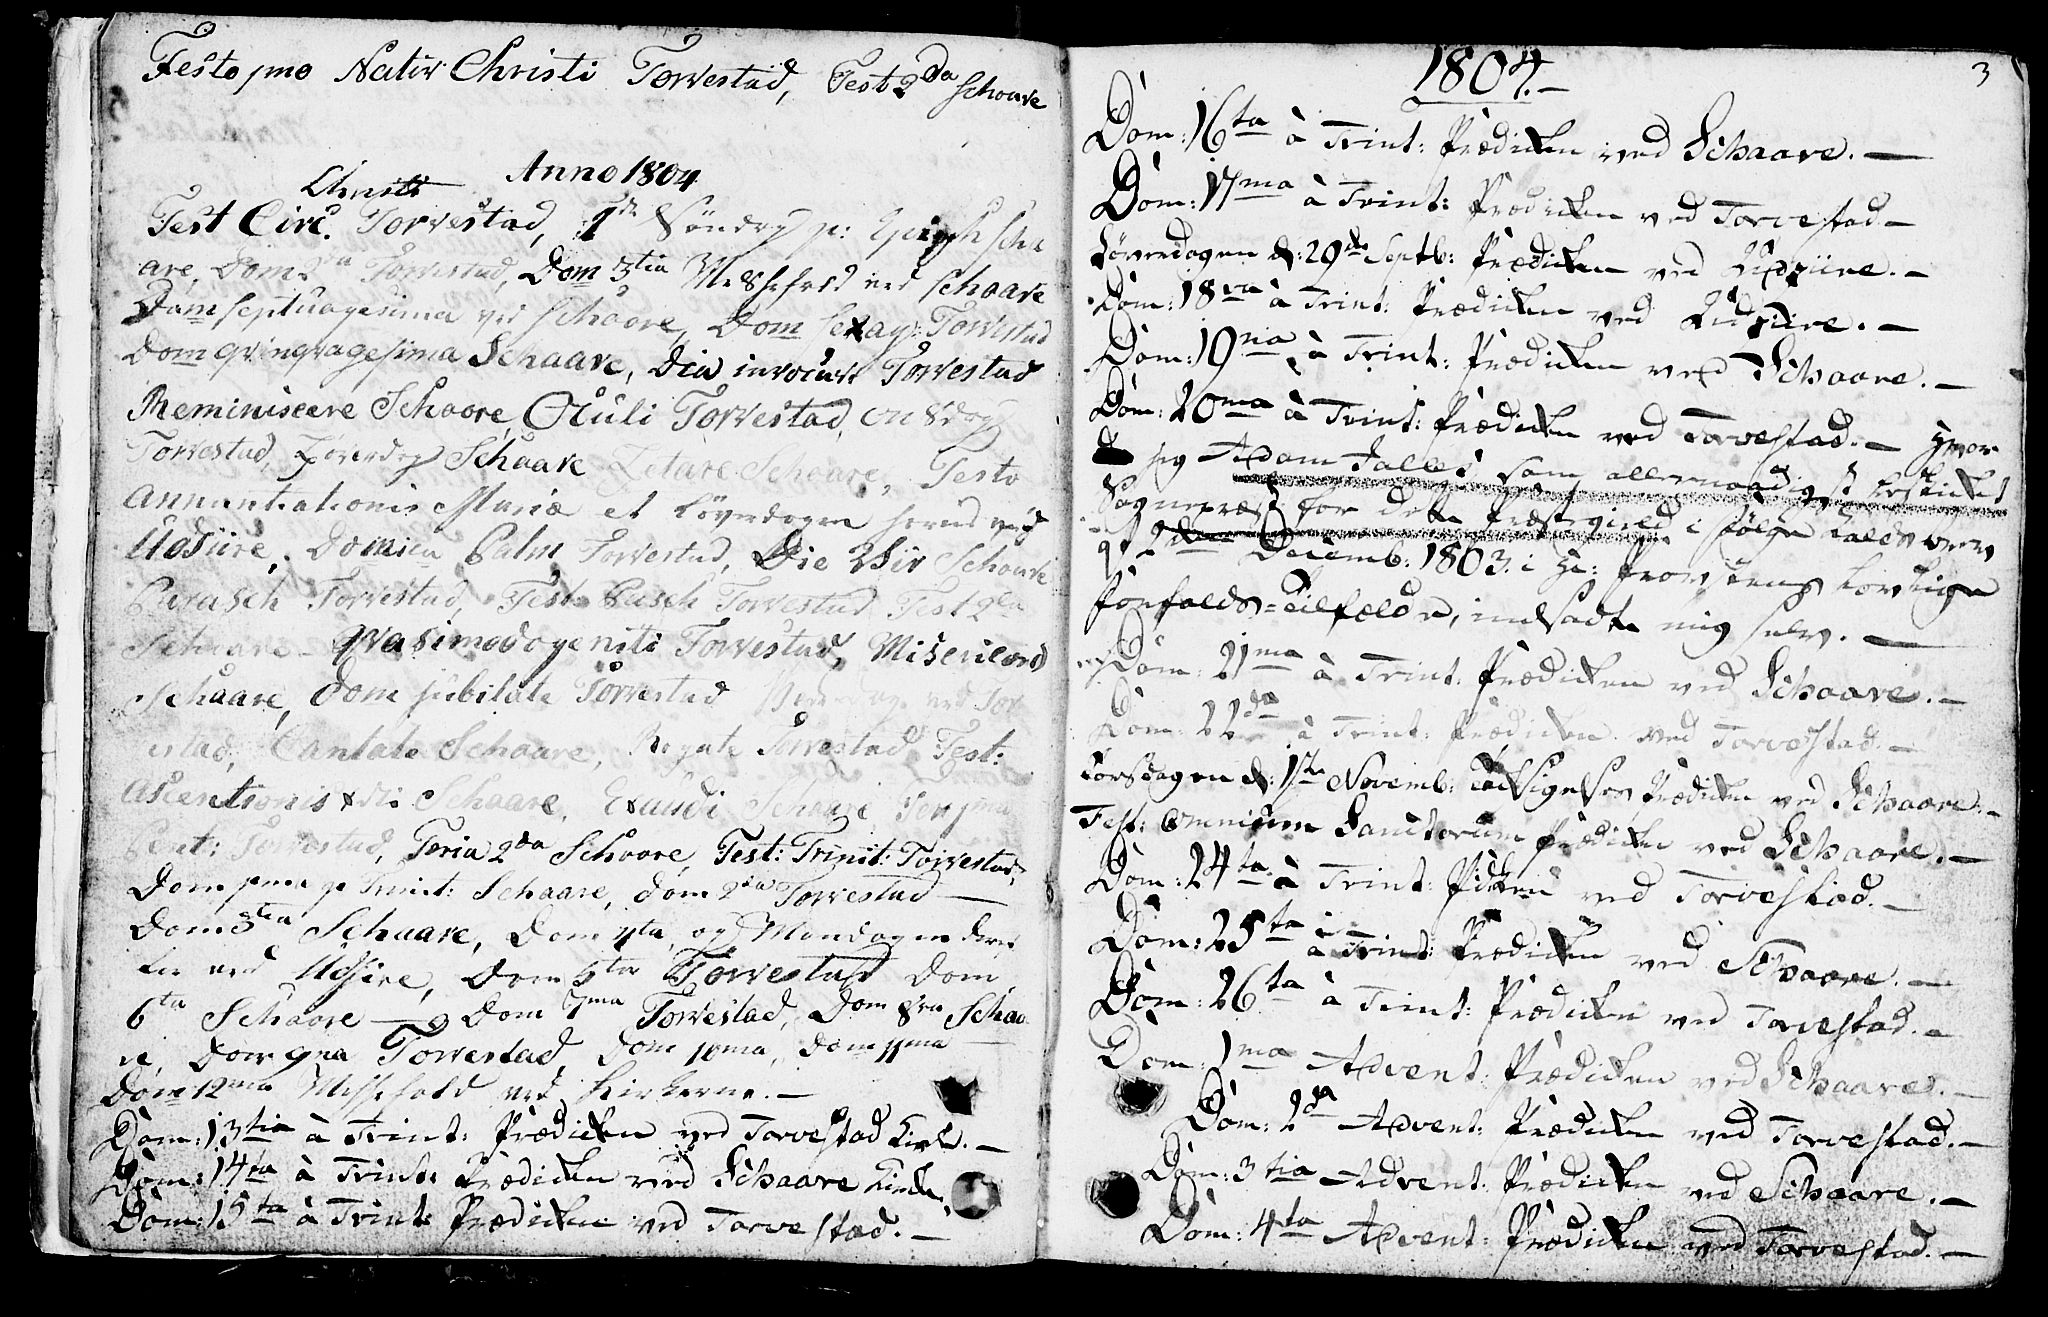 Festo pmo Nativ Christi Torvestad, Fest 2da Schaare
Anno 1804
Christi
Fest Circ. Torvestad, 1ste Söndag p: Epiph Scha
are, Dom 2da Torvestad, Dom 3tia Messefald ved Schaare
Dom Septuagesima ved Schaare, Dom Sexag: Torvestad
Dom qvinqvagesima Schaare, Dia invocavit Torvestad
Reminiscere Schaare, Oculi Torvestad, Onsdag
Torvestad, Löverdag Schaare Letare Schaare, Festo
Annuntiationis Mariæ et Löverdagen ved
Udsiire, Domica Palm Torvestad, Die Viir Schaare
Parasch Torvestad, Fest Pasch Torvestad Fest 2da
Schaare Qvasimodogeniti Torvestad, Misericord
Schaare, Dom jubilate Torvestad Bededag ved Tor
vestad, Cantate Schaare, Rogate Torvestad Fest:
Ascentionis Schaare, Exaudi Schaare Fer pma
Pent: Torvestad, Feria 2da Schaare, Fest: Trinit: Torvestad,
Dom pma p Trinit: Schaare, Dom 2da Torvestad —
Dom 3tia Schaare, Dom 4ta, og Mandagen der
ved Udsire, Dom 5ta Torvestad Dom
6ta Schaare — Dom 7ma Torvestad, Dom 8va Schaa
re, Dom 9na Torvestad, Dom 10ma, Dom 11ma —
Dom 12ma Messefald ved Kirkerne. —
Dom: 13tia à Trint: Prædiken ved Torvestad Kirk. —
Dom: 14ta à Trint: Prædiken ved Schaare Kirke.
Dom: 15ta à Trint: Prædiken ved Torvestad. —
1804. —
3
Dom: 16ta à Trint: Prædiken ved Schaare. —
Dom: 17ma à Trint: Prædiken ved Torvestad. —
Löverdagen d: 29de Septb: Prædiken ved Udsiire. —
Dom: 18va à Trint: Prædiken ved Udsiire. —
Dom: 19na à Trint: Prædiken ved Schaare. —
Dom: 20ma à Trint: Prædiken ved Torvestad. — Hvor
jeg Adam Jalles som allernaadigst beskicket
Sognepræst for dette Præstegield i følge Kalds brev
af 2den Decemb: 1803. i Hr: Provstens lovlige
Forfalds-Tilfælde, indsadte mig selv. —
Dom: 21ma à Trint: Prædiken ved Schaare. —
Dom: 22da à Trint: Prædiken ved Torvestad. —
Torsdagen d: 1ste Novemb: Taksigelses Prædiken ved Schaare. —
Fest: Omnium Sanctorum Prædiken ved Schaare. —
Dom: 24ta à Trint: Pdiken ved Torvestad. —
Dom: 25ta à Trint: Prædiken ved Schaare. —
Dom: 26ta à Trint: Prædiken ved Torvestad. —
Dom: 1ma Advent: Prædiken ved Schaare. —
Dom: 2da Advent: Prædiken ved Torvestad. —
Dom: 3tia Advent: Prædiken ved Schaare. —
Dom: 4ta Advent: Prædiken ved Torvestad. —